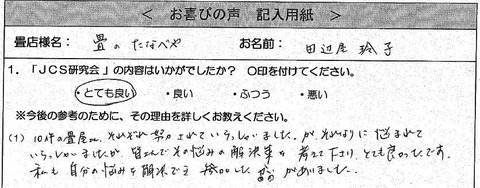 ＜ お喜びの声 記入用紙 ＞
畳店様名： 畳のたなべや お名前： 田辺 玲子
1．「JCS研究会」の内容はいかがでしたか？ ○印を付けてください。
・とても良い ・良い ・ふつう ・悪い
※今後の参考のために、その理由を詳しくお教えください。
(1) 10件の畳屋が、それぞれ努力されていらっしゃいました。が、それなりに悩まれて
いらっしゃいましたが 皆さんでその悩みの解決策を考えて下さり、とても良かったです。
私も自分の悩みを解決でき 参加した がありました。